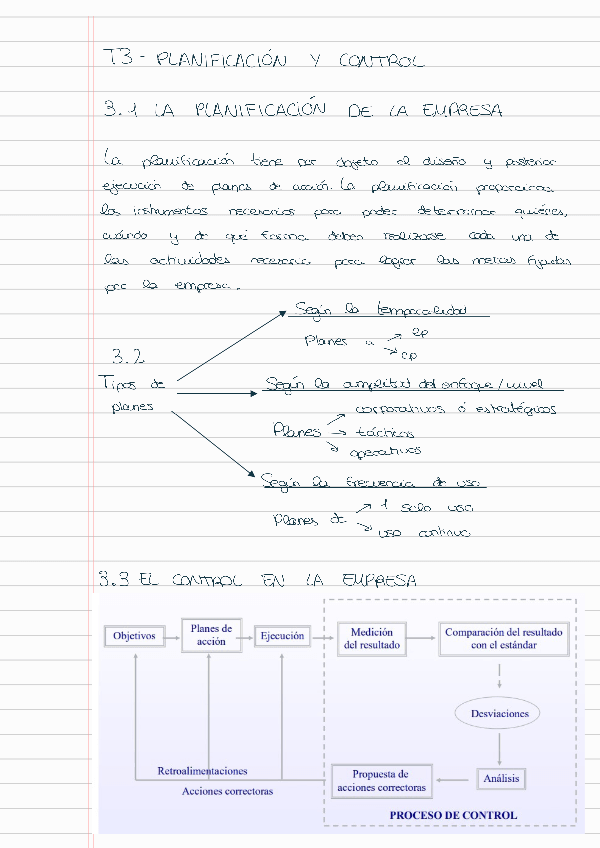 T3 - PLANIFICACIÓN Y CONTROL
3.1 LA PLANIFICACIÓN DE LA EMPRESA
La planificación tiene por objeto el diseño y posterior
ejecución de planes de acción. La planificación proporciona
los instrumentos necesarios para poder determinar quiénes,
cuándo y de qué forma deben realizarse cada una de
las actividades necesaria para lograr las metas fijadas
por la empresa.
Según la temporalidad
Planes a
lp
cp
3.2
Tipos de
planes
Según la amplitud del enfoque / nivel
corporativos ó estratégicos
Planes → tácticos
operativos
Según la frecuencia de uso
Planes de
1 solo uso
uso continuo
3.3 EL CONTROL EN LA EMPRESA
Objetivos
Planes de
acción
Ejecución
Medición
del resultado
Comparación del resultado
con el estándar
Desviaciones
Retroalimentaciones
Acciones correctoras
Propuesta de
acciones correctoras
Análisis
PROCESO DE CONTROL